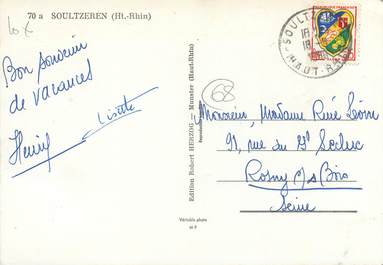 70 a SOULTZEREN (Ht.-Rhin)
Bon souvenir
de vacances
Henri
68
SOULTZ
18
HAUT-RHIN
Monsieur, Madame René Léon
91, rue du Gl Leclerc
Rosny s/s Bois
Seine
Edition Robert HERZOG - Munster (Haut-Rhin)
Reproduction
Véritable photo